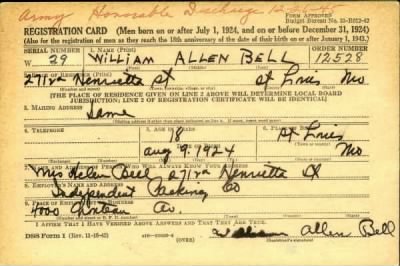 Army Honorable Discharge
Form Approved
Budget Bureau No. 33-R012-42
REGISTRATION CARD—(Men born on or after July 1, 1924, and on or before December 31, 1924)
(Also for the registration of men as they reach the 18th anniversary of the date of their birth on or after January 1, 1943.)
SERIAL NUMBER 1. NAME (Print) ORDER NUMBER
W 29 WILLIAM ALLEN BELL 12528
Henrietta St St Louis Mo
[THE PLACE OF RESIDENCE GIVEN ON LINE 2 ABOVE WILL DETERMINE LOCAL BOARD
JURISDICTION; LINE 2 OF REGISTRATION CERTIFICATE WILL BE IDENTICAL]
3. MAILING ADDRESS
Same
4. TELEPHONE 5. AGE IN YEARS 6. PLACE OF BIRTH
18 St Louis
DATE OF BIRTH
Aug 9 1924 Mo
7. NAME AND ADDRESS OF PERSON WHO WILL ALWAYS KNOW YOUR ADDRESS
Mrs Helen Bell Henrietta St
8. EMPLOYER'S NAME AND ADDRESS
Independent Packing Co
4000 Chouteau Av.
I AFFIRM THAT I HAVE VERIFIED ABOVE ANSWERS AND THAT THEY ARE TRUE.
DSS Form 1 (Rev. 11-16-42) (OVER) William Allen Bell
(Registrant's signature)